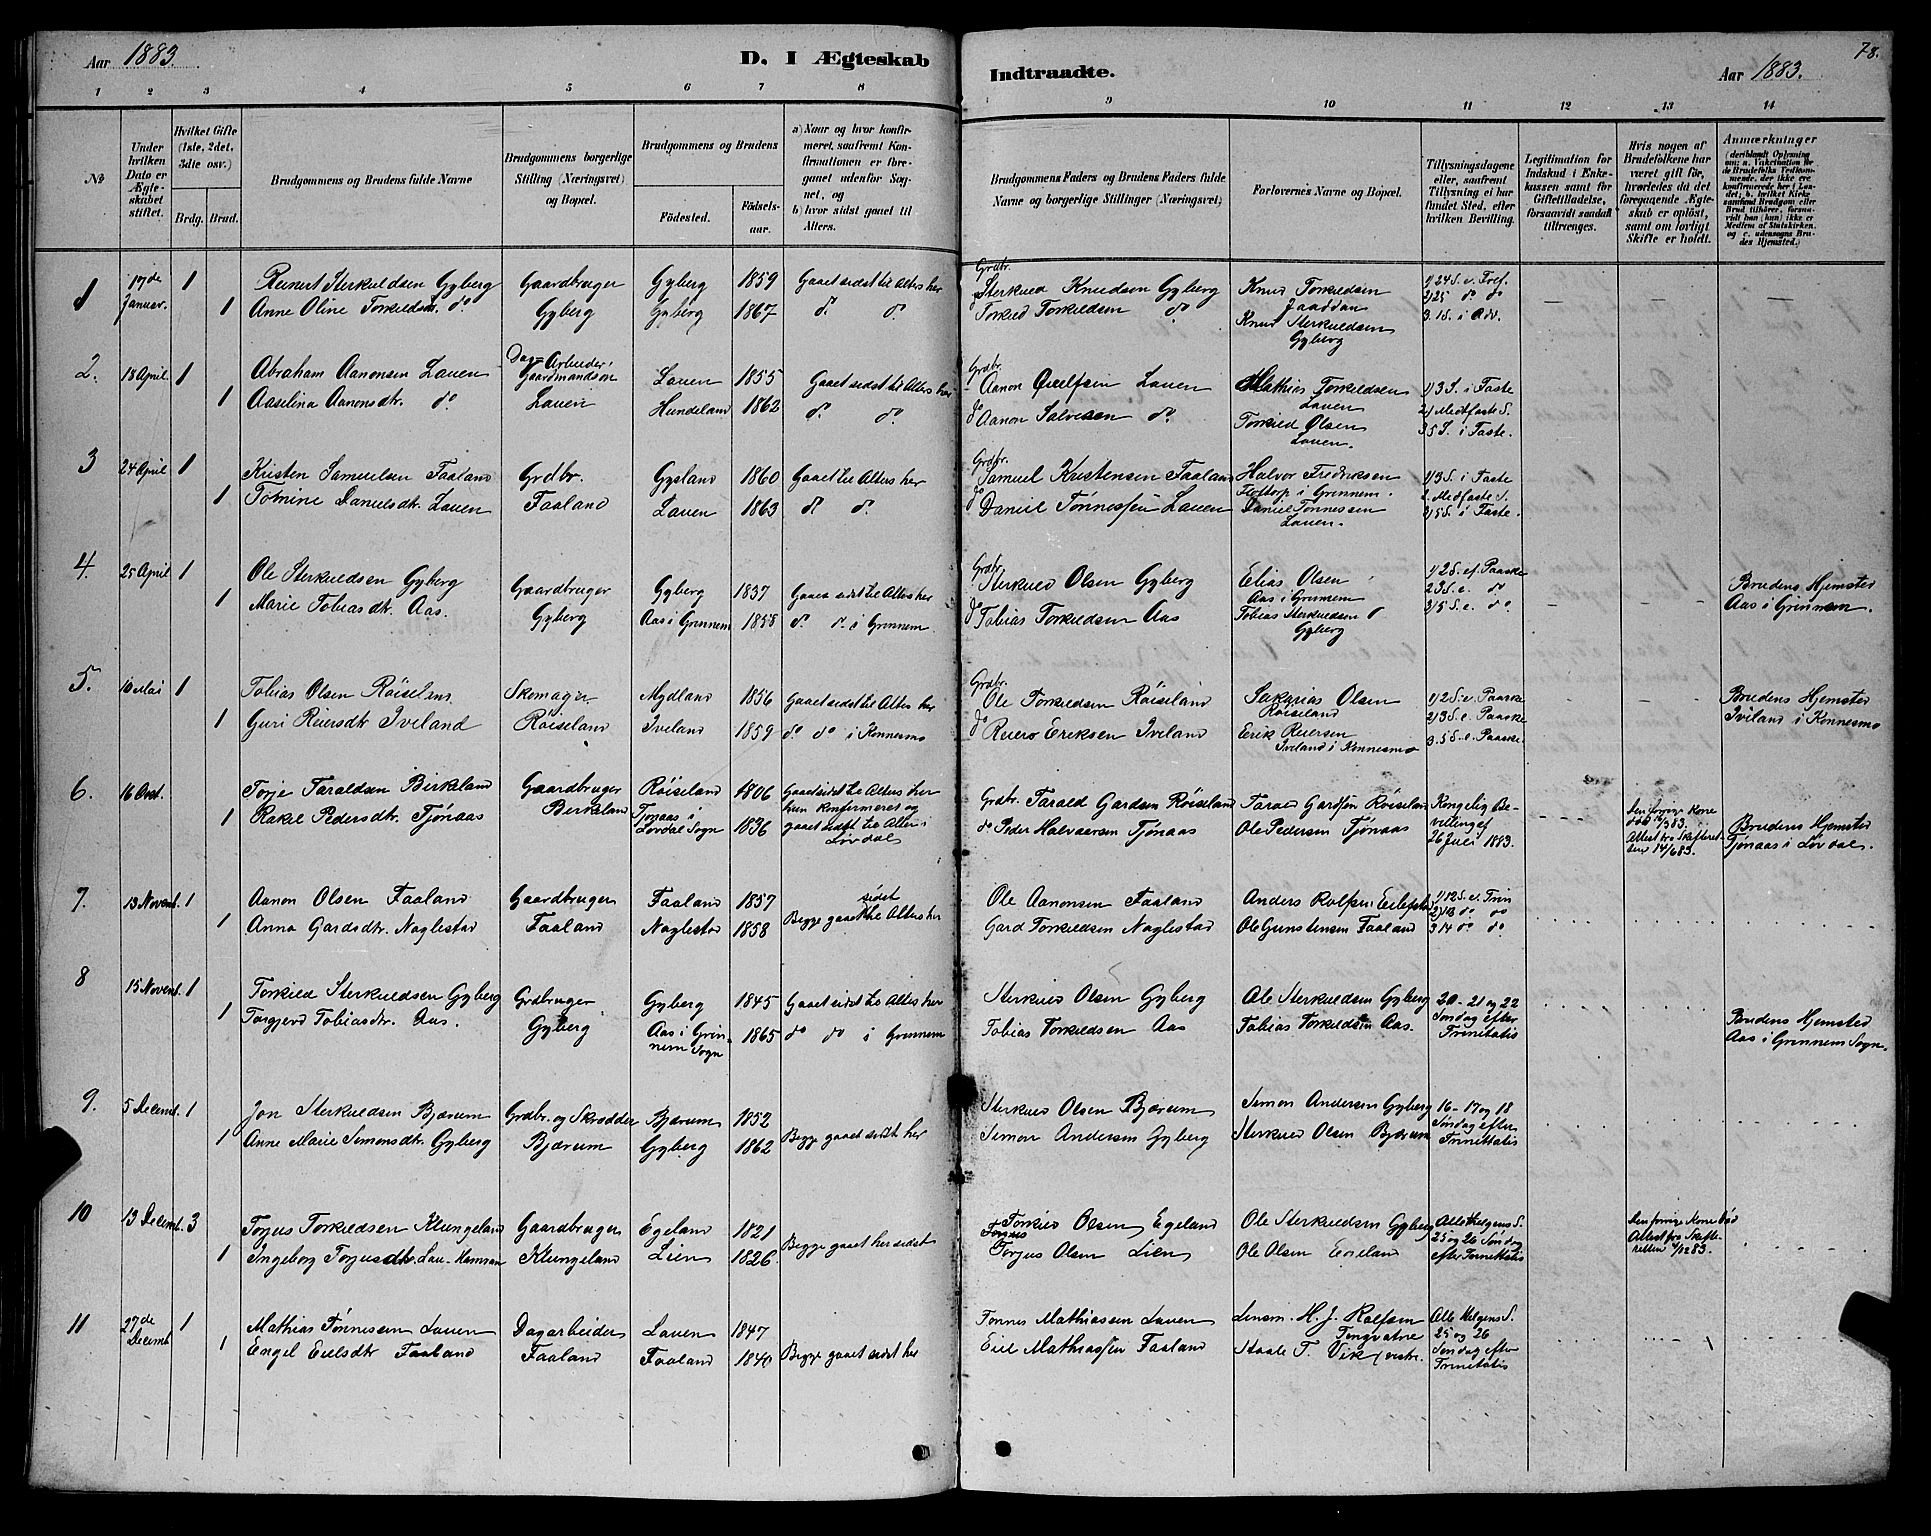 Aar 1883.
D. I Ægteskab
Indtraadte.
Aar 1883.
78.
1 2 3 4 5 6 7 8 9 10 11 12 13 14
No
Under hvilken Dato er Ægteskabet stiftet.
Hvilket Gifte (1ste, 2det, 3dte osv.)
Brdg. Brud.
Brudgommens og Brudens fulde Navne
Brudgommens borgerlige Stilling (Næringsvei) og Bopæl.
Brudgommens og Brudens
Fødested.
Fødselsaar.
a) Naar og hvor konfirmeret, saafremt Konfirmationen er foregaaet udenfor Sognet, og
b) hvor sidst gaaet til Alters.
Brudgommens Faders og Brudens Faders fulde Navne og borgerlige Stillinger (Næringsvei)
Forlovernes Navne og Bopæl.
Tillysningsdagene eller, saafremt Tillysning ei har fundet Sted, efter hvilken Bevilling.
Legitimation for Indskud i Enkekassen samt for Giftetilladelse, forsaavidt saadant tiltrænges.
Hvis nogen af Brudefolkene har været gift før, hvorledes da det foregaaende Ægteskab er opløst, samt om lovligt Skifte er holdt.
Anmærkninger
1 17de Januar. 1 Reinert Sterkuldsen Gyberg Gaardbruger Gyberg 1859 Gaaet sidst til Alters her Grdbr. Sterkuld Knudsen Gyberg Knud Torkildsen 1) 24 S. e. Tref.
1 Anne Oline Torkildsdt. do Gyberg Gyberg 1867 do do Torkild Torkildsen do Jaaddan 2) 25 do do
Knud Sterkuldsen Gyberg 3. 1 S. i Adv.
2. 18 April. 1 Abraham Aanonsen Lauen Dag-Arbeider, Gaardmandssøn Lauen 1855 Gaaet sidst til Alters her Grdbr. Aanon Lauen Mathias Torkildsen Lauen 1) 3 S. i Faste
1 Aaselina Aanonsdtr. do Lauen Hundeland 1862 do do do Aanon Salvesen do Torkild Olsen Lauen 2) Midfaste S. 3 5 S. i Faste.
3 24 April 1 Kristen Samuelsen Faaland Grdbr. Gysland 1860 Gaaet til Alters her Grdbr. Samuel Kristensen Faaland Halvor Fredriksen 1) 3 S. i Faste
1 Tomine Danielsdtr. Lauen Faaland Lauen 1863 do do do Daniel Tønnessen Lauen i Grinnem. Daniel Tønnessen Lauen. 2. Midfaste S. 3) 5 S. i Faste.
4. 25 April 1 Ole Sterkuldsen Gyberg Gaardbruger Gyberg 1837 Gaaet sidst til Alters her Grdbr. Sterkuld Olsen Gyberg Elias Olsen Aas i Grinnem 1) 2 S. ef. Paaske
1 Marie Tobiasdtr. Aas. Gyberg Aas i Grinnem 1858 do do i Grinnem do Tobias Torkildsen Aas Tobias Sterkuldsen Gyberg 2 3 S. e. do 3) 5 S. e. do. Brudens Hjemsted Aas i Grinnem.
5. 10 Mai 1 Tobias Olsen Røiseland Skomager Mydland 1856 Gaaet sidst til Alters her Grdbr. Ole Torkildsen Røiseland Sakarias Olsen Røiseland 1) 2 S. e. Paaske
1 Guri Reiersdtr Iveland Røiseland Iveland 1859 do do i Konnesmo do Reiers Eriksen Iveland Erik Reiersen Iveland i Konnesmo 2) 3 S. e. Paaske 3. 5 S. e. Paaske Brudens Hjemsted Iveland i Konnesmo
6. 16 Oct. Torje Taraldsen Birkeland Gaardbruger Røiseland 1806 Gaaet sidst til Alters her Grdbr. Tarald Gardsen Røiseland Tarald Gardsen Røiseland Kongelig Bevilling af 26 Juli 1883.
1 Rakel Pedersdtr. Tjønaas Birkeland Tjønaas i Løvdal Sogn 1836 hun konfirmeret og gaaet sidst til Alters i Løvdal do Peder Halvorsen Tjønaas Ole Pedersen Tjønaas Den forrige Kone død 83. Attest fra Skifteretten 14/6 83. Brudens Hjemsted Tjønaas i Løvdal.
7. 13 Novemb. 1 Aanon Olsen Faaland Gaardbruger Faaland 1857 Begge gaaet sidst til Alters her Ole Aanonsen Faaland Anders Rolfsen Eilefstad 1) 12 S. e. Trin
1 Anna Gardsdtr. Naglestad Faaland Naglestad 1858 Gard Torkildsen Naglestad Ole Gunstensen Faaland 2) 13 do do 3 14 do do
8 15 Novemb. 1 Torkild Sterkuldsen Gyberg Grdbruger Gyberg 1845 Gaaet sidst til Alters her Sterkuld Olsen Gyberg Ole Sterkuldsen Gyberg 20-21 og 22 Søndag efter Trinitatis
1 Torgjerd Tobiasdtr. Aas. Gyberg Aas i Grinnem Sogn 1865 do do i Grinnem Tobias Torkildsen Aas Tobias Torkildsen Aas. Brudens Hjemsted Aas i Grinnem Sogn.
9. 5 Decemb. 1 Jon Sterkuldsen Bjærum Grdbr. og Skrædder Bjærum 1852 Begge gaaet sidst her Sterkuld Olsen Bjærum Simon Andersen Gyberg 16-17 og 18 Søndag efter Trinitatis
1 Anne Marie Simonsdtr. Gyberg Bjærum Gyberg 1862 Simon Andersen Gyberg Sterkuld Olsen Bjærum
10 13 Decemb. 3 Torjus Torkildsen Klungeland Gaardbruger Egeland 1821 Begge gaaet her sidst Torkild Olsen Egeland Ole Sterkuldsen Gyberg Allehelgens S. 25 og 26 Søndag efter Trinitatis
1 Ingeborg Torjusdtr. Klungeland Lien 1826 Torjus Olsen Lien Ole Olsen Egeland Den forrige Kone død Attest fra Skifteretten 83.
11 27de Decemb 1 Mathias Tønnessen Lauen Dagarbeider Lauen 1847 Begge gaaet sidst her Tønnes Mathiassen Lauen Lensm. H. J. Rolfsen Tingvatne Alle Helgens S. 25 og 26 Søndag efter Trinitatis
1 Engel Eielsdtr Faaland Faaland Faaland 1840 Eiel Mathiassen Faaland Staale T. Vik